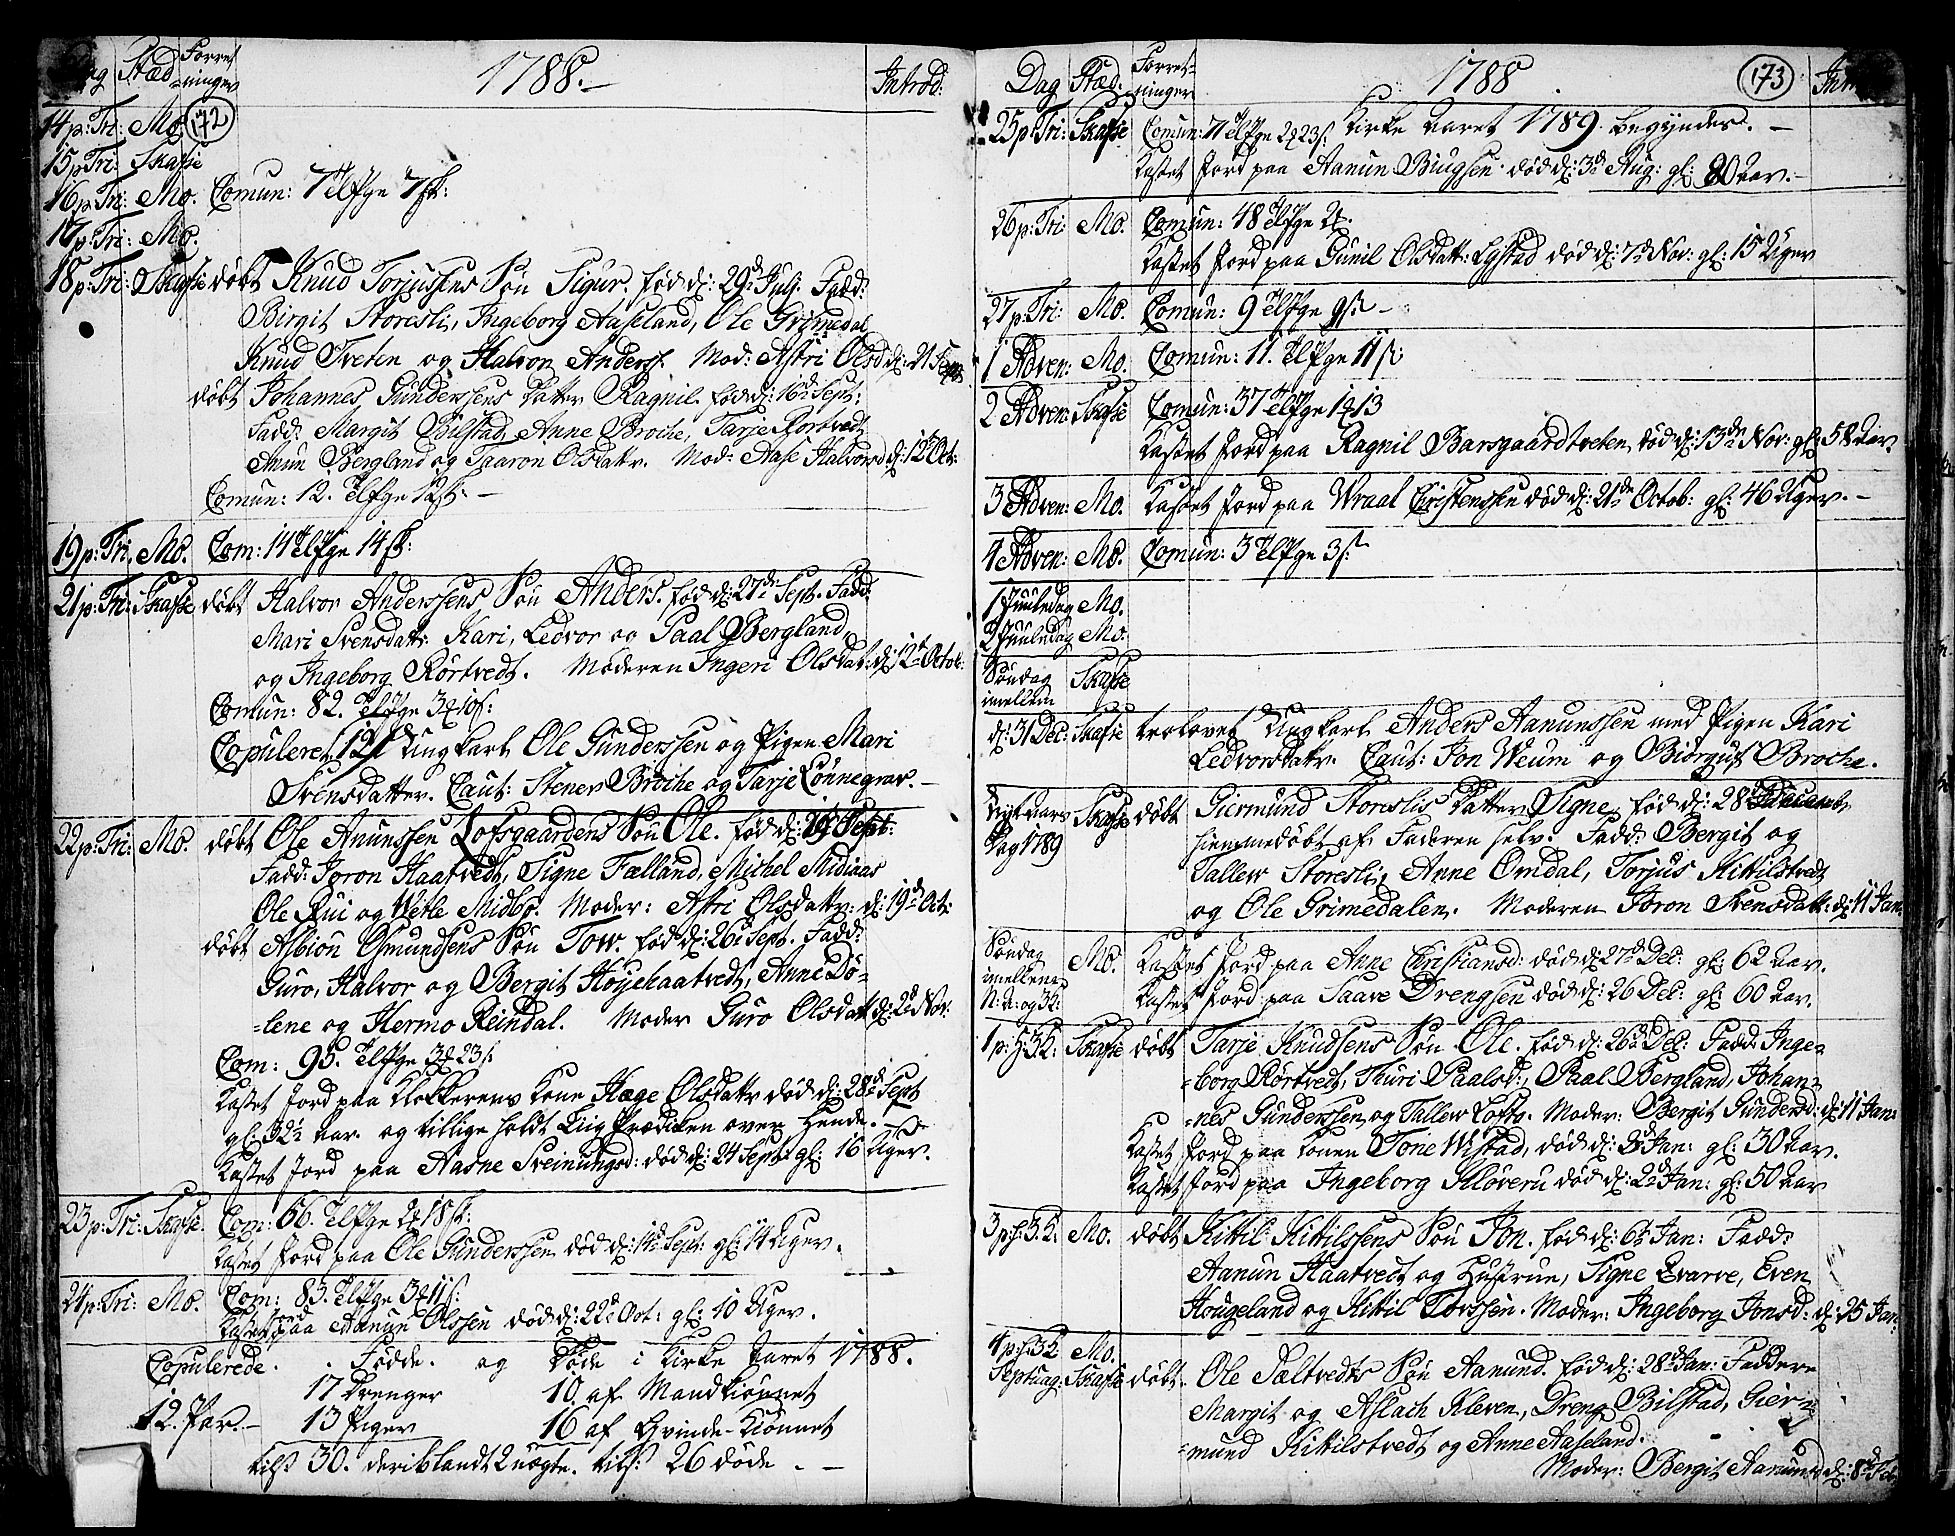 Dag Stæd Forret-ninger 1788.- Introd:
14 p: Tri: Mo. 172
15 p Tri: Skafse
16 p: Tri: Mo. Comun: 7
17 p: Tri: Mo.
18 p: Tri: Skafse døbt Knud Torjussens Søn Sigur. fød d: 29d July. Fad:
Birgit Storesli, Ingeborg Aaseland, Ole Grimedal
Knud Tveten og Halvor Anders: Mod: Astri Olsd d: 21 Sept
døbt Johannes Gunderssens Datter Ragnil. fød d: 16d Sept:
Fadd: Margit Bilstad, Anne Broche, Tarje Rørtvedt
Anun Bergland og Taaron Olsdattr. Mod: Aase Halvorsd d: 12 Oct:
Comun: 12.
19 p: Tri. Mo. Com: 14
21 p: Tri: Skafse døbt Halvor Anderssens Søn Anders. fød d: 27de Sept. Fadd:
Mari Svensdattr: Kari, Ledvor og Paal Bergland,
og Ingeborg Rørtvedt. Moderen Ingeri Olsdat: d: 12t Octob:
Comun: 82.
Copuleret Ungkarl Ole Gunderssen og Pigen Mari
Svensdatter. Caut: Stener Broche og Tarje Lønnegrav.-
22 p: Tri: Mo. døbt Ole Anunssen Lofsgaardens Søn Ole. fød d: 29 Sept:
Fadd: Joron Haatvedt, Signe Fælland, Michel Midiaas
Ole Rui og Vetle Midbø. Moder: Astri Olsdattr: d: 19d Oct:
døbt Asbiøn Osmundsens Søn Tow. fød d: 26 Sept. Fadd:
Guro, Halvor og Bergit Høyehaatvedt, Anne Dø-
=lene og Hermo Reindal. Moder Guro Olsdatt d: 2d Nov:
Com: 95.
Kastet Jord paa Klokkerens Kone Hæge Olsdattr død d: 28d Sept
gl: 32½ aar. og tillige holdt Liig Prædiken over hende.
Kastet Jord paa Aasne Sveinungsd: død d: 24 Sept: gl: 16 Uger.
23 p: Tri: Skafse. Com: 66.
Kastet Jord paa Ole Gunderssen død d: 14d Sept: gl: 14 Uger.
24 p: Tri: Mo. Com: 83.
Kastet Jord paa Aanun Olssen død d: 22d Oct: gl: 10 Uger.
Copulerede. Fødde. og Døde i Kirke Aaret 1788.
17 Drenger 10 af Mandkiønnet
12. Par.- 13 Piger 16 af Qvinde-Kiønnet
tils: 30. deriblandt 2 uægte. tils: 26 døde.-
Dag Stæd: Forret-ninger 1788 173
25 p: Tri: Skafse Comun: 71 Kirke Aaret 1789. begyndes.-
Kastet Jord paa Aanun Biugsen død d: 3d Aug: gl: 80 aar.-
26 p: Tri: Mo. Comun: 48
Kastet Jord paa Gunil Olsdatt: Egstad død d: 7d Nov: gl: 15 Uger
27 p: Tri: Mo. Comun: 9
1 Adven: Mo. Comun: 11.
2 Adven: Skafse Comun: 37
Kastet Jord paa Ragnil Barsgaardtveten, død d: 13de Nov: gl: 58 Aar.
3 Adven: Mo. Kastet Jord paa Wraal Christenssen død d: 21de Octob: gl: 46 Uger.-
4 Adven: Mo. Comun: 3
1 Juuledag Mo.
2 Juuledag Mo.
Søndag imellem Skafse
d: 31 Dec: Skafse trolovet Ungkarl Anders Aanunssen med Pigen Kari
Ledvorsdattr. Caut: Jon Weum og Biørguf Broche.
Nyt-Aars Dag 1789 Skafse døbt Giermund Storeslis Datter Signe, fød d: 28
hiemmedøbt af Faderen selv. Fadd: Bergit og
Tallew Storesli, Anne Omdal, Torjus Kittilstvedt
og Ole Grimedalen. Moderen Joron Svensdatt: d: 11 Jan:
Søndag imellem N:A: og 3K: Mo. Kastet Jord paa Anne Christiansd: død d: 27d Dec: gl: 62 Aar.
Kastet Jord paa Saave Drengsen død d: 26 Dec: gl: 60 Aar.
1 p: h: 3K: Skafse døbt Tarje Knudsens Søn Ole. fød d: 26d Dec: Fadd: Inge-
=borg Rørtvedt, Thuri Paalsd:, Paal Bergland, Johan-
=nes Gunderssen og Tallew Lofto. Moder: Bergit Gundersd: d: 11 Jan:
Kastet Jord paa Konen Tone Wistad, død d: 3d Jan: gl: 30 Aar.
Kastet Jord paa Ingeborg Kløveru død d: 2d Jan: gl: 50 Aar
3 p h: 3K: Mo. døbt Kittil Kittilssens Søn Jon. fød d: 6d Jan: Fadd:
Aanun Haatvedt og Hustrue, Signe Qvarve, Even
Hougeland og Kittil Torssen. Moder: Ingeborg Jonsd: d: 25 Jan:
4 p: h: 3K Mo.
Septuag: Skafse døbt. Ole Sæltvedts Søn Aanund. fød d: 28d Jan: Faddere
Margit og Aslach Kleven, Dreng Bilstad, Gier-
=mund Kittilstvedt og Anne Aaseland.
Moder: Bergit Aanunsd d: 8d Feb